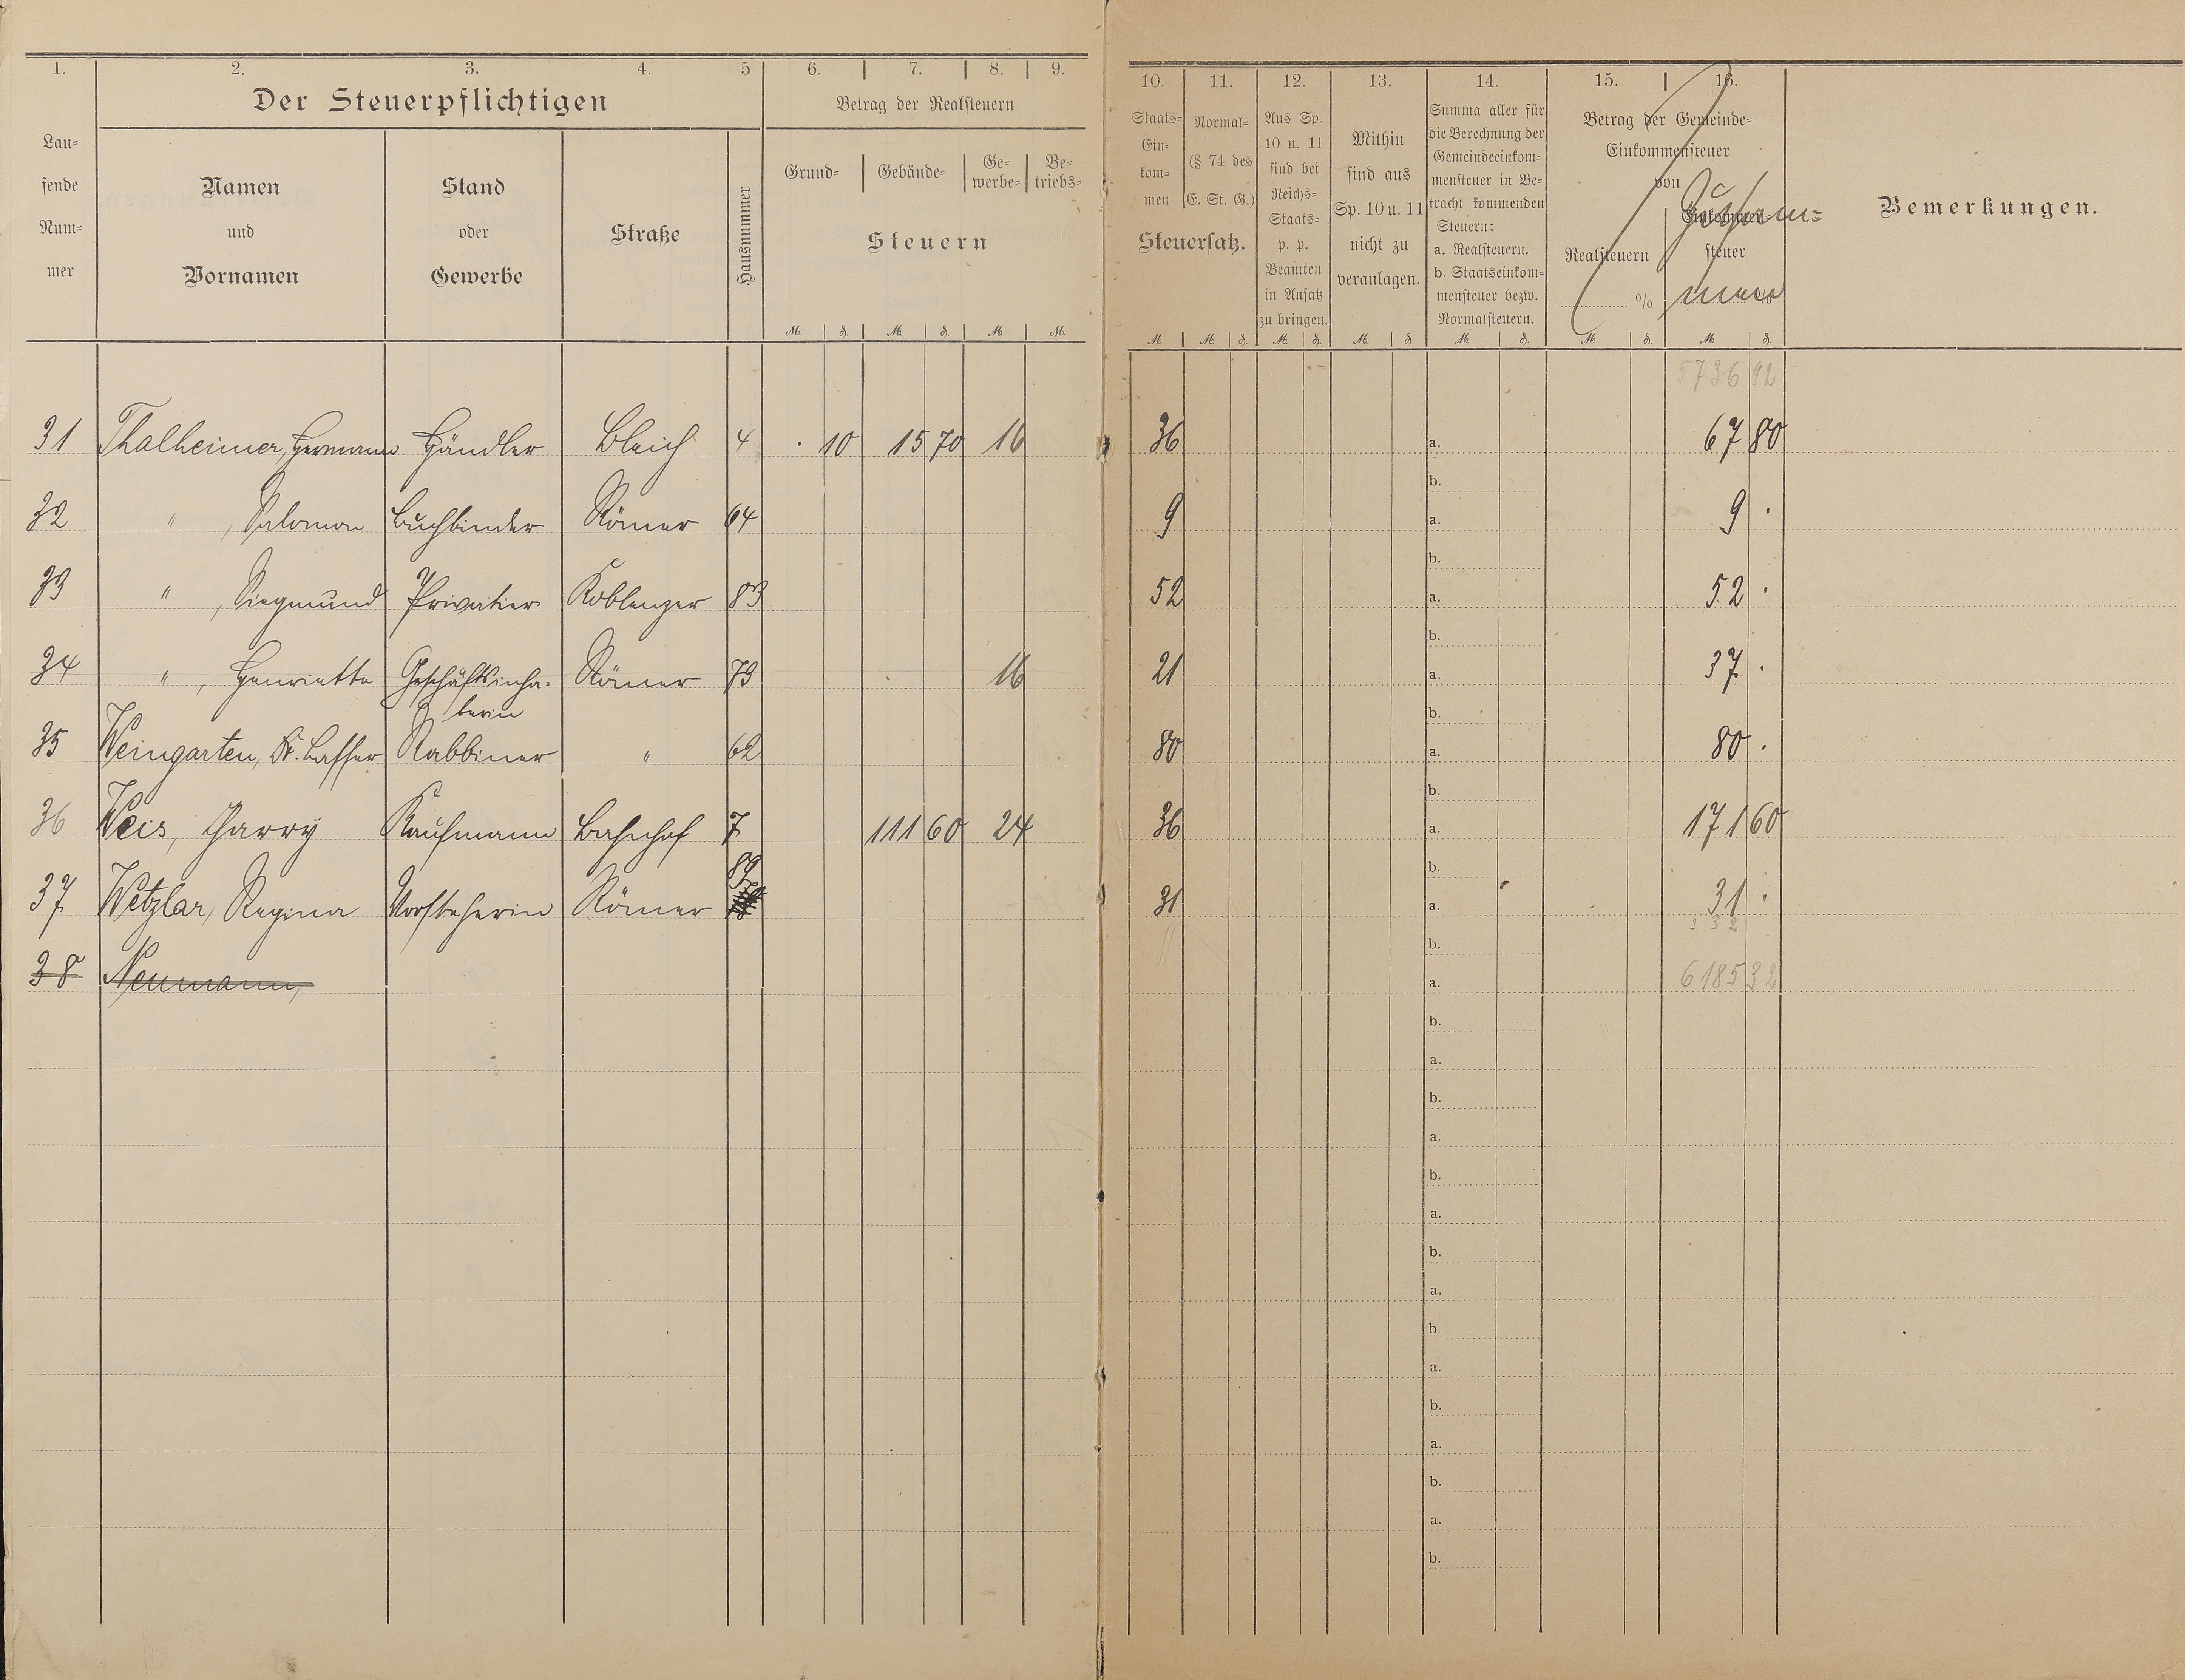 1. 2. 3. 4. 5 6. 7. 8. 9. 10. 11. 12. 13. 14. 15. 16.
Lau-
fende
Num-
mer
Der Steuerpflichtigen
Namen
und
Vornamen
Stand
oder
Gewerbe
Straße
Hausnummer
Betrag der Realsteuern
Grund- Gebäude- Ge-
werbe- Be-
triebs-
Steuern
M. ₰. M. ₰. M. M.
Staats-
Ein-
kom-
men
Normal-
(§ 74 des
E. St. G.)
Steuersatz.
Aus Sp.
10 u. 11
sind bei
Reichs-
Staats-
p. p.
Beamten
in Ansatz
zu bringen.
Mithin
sind aus
Sp. 10 u. 11
nicht zu
veranlagen.
Summa aller für
die Berechnung der
Gemeindeeinkom-
mensteuer in Be-
tracht kommenden
Steuern:
a. Realsteuern.
b. Staatseinkom-
mensteuer bezw.
Normalsteuern.
Betrag der Gemeinde-
Einkommensteuer
von
Realsteuern
%
Einkommen-
steuer
Zusam-
men
Bemerkungen.
M. M. ₰. M. ₰. M. ₰. M. ₰. M. ₰. M. ₰.
5736 92
31 Thalheimer, Hermann Händler Bleich 4 . 10 15 70 16 36 a. 67 80
b.
32 " , Salomon Buchbinder Römer 64 9 a. 9 .
b.
33 " , Siegmund Privatier Koblenzer 83 52 a. 52 .
b.
34 " , Henriette Geschäftsinha- Römer 73 16 21 a. 37 .
berin b.
35 Weingarten, Dr. Lasser Rabbiner " 62 80 a. 80 .
b.
36 Weis, Harry Kaufmann Bahnhof 7 111 60 24 36 a. 171 60
b.
37 Wetzlar, Regina Vorsteherin Römer 89 31 a. 31 .
3 3 2
b.
38 Neumann, a. 6185 32
b.
a.
b.
a.
b.
a.
b.
a.
b.
a.
b.
a.
b.
a.
b.